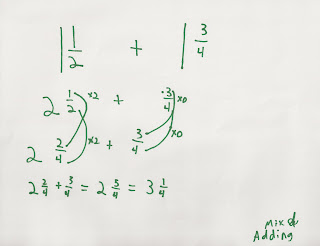 1 1/2 + 1 3/4
2 1/2 ×2 + 3/4 ×0
2 2/4 ×2 + 3/4 ×0
2 2/4 + 3/4 = 2 5/4 = 3 1/4
mixed
Adding